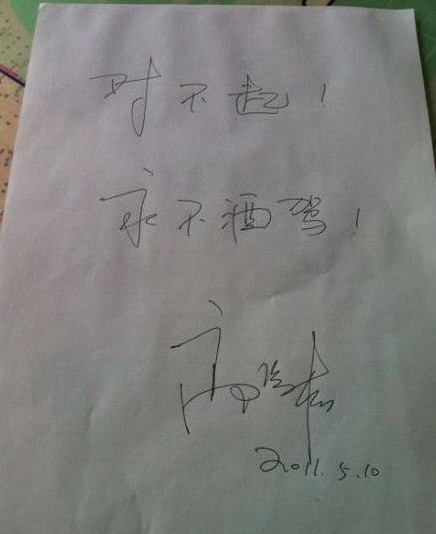 对不起！
永不酒驾！
高
2011.5.10